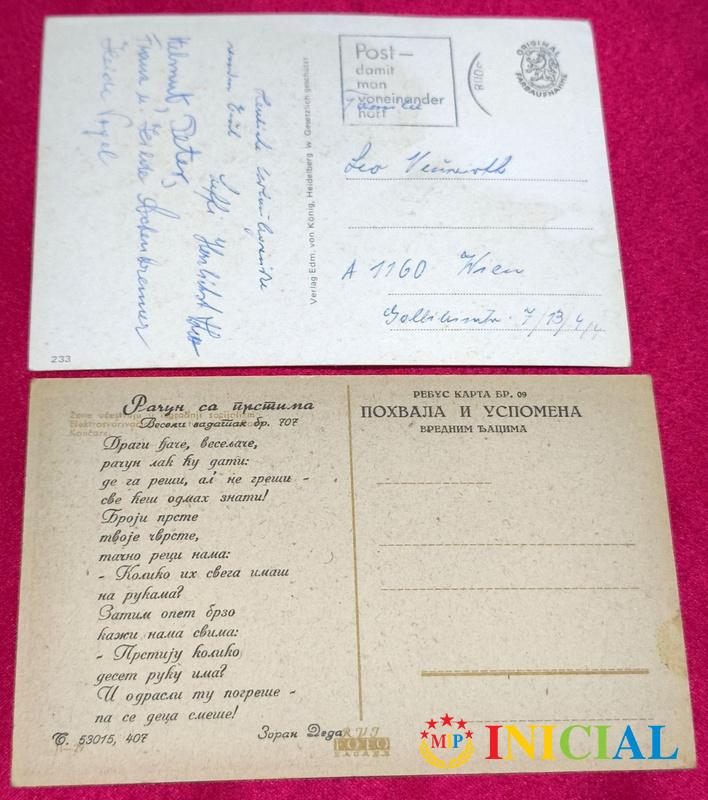 ORIGINAL
FARBAUFNAHME
Post—
damit
man
voneinander
hört
Familie
Leo
A 1160 Wien
7/13/4/4
Herzliche
Helmut, Peter,
Heide Vogel
Verlag Edm. von König, Heidelberg w Gesetzlich geschützt
233
Рачун са прстима
Весели задатак бр. 707
Žene učestvuju u izgradnji socijalizma
Končar
Драги ђаче, весељаче,
рачун лак ћу дати:
де га реши, ал' не греши -
све ћеш одмах знати!
Броји прсте
твоје чврсте,
тачно реци нама:
- Колико их свега имаш
на рукама?
Затим опет брзо
кажи нама свима:
- Прстију колико
десет руку има?
И одрасли ту погреше -
па се деца смеше!
Т. 53015, 407
Зоран Деда
РЕБУС КАРТА БР. 09
ПОХВАЛА И УСПОМЕНА
ВРЕДНИМ ЂАЦИМА
FOTO
ZAGREB
MP
INICIAL